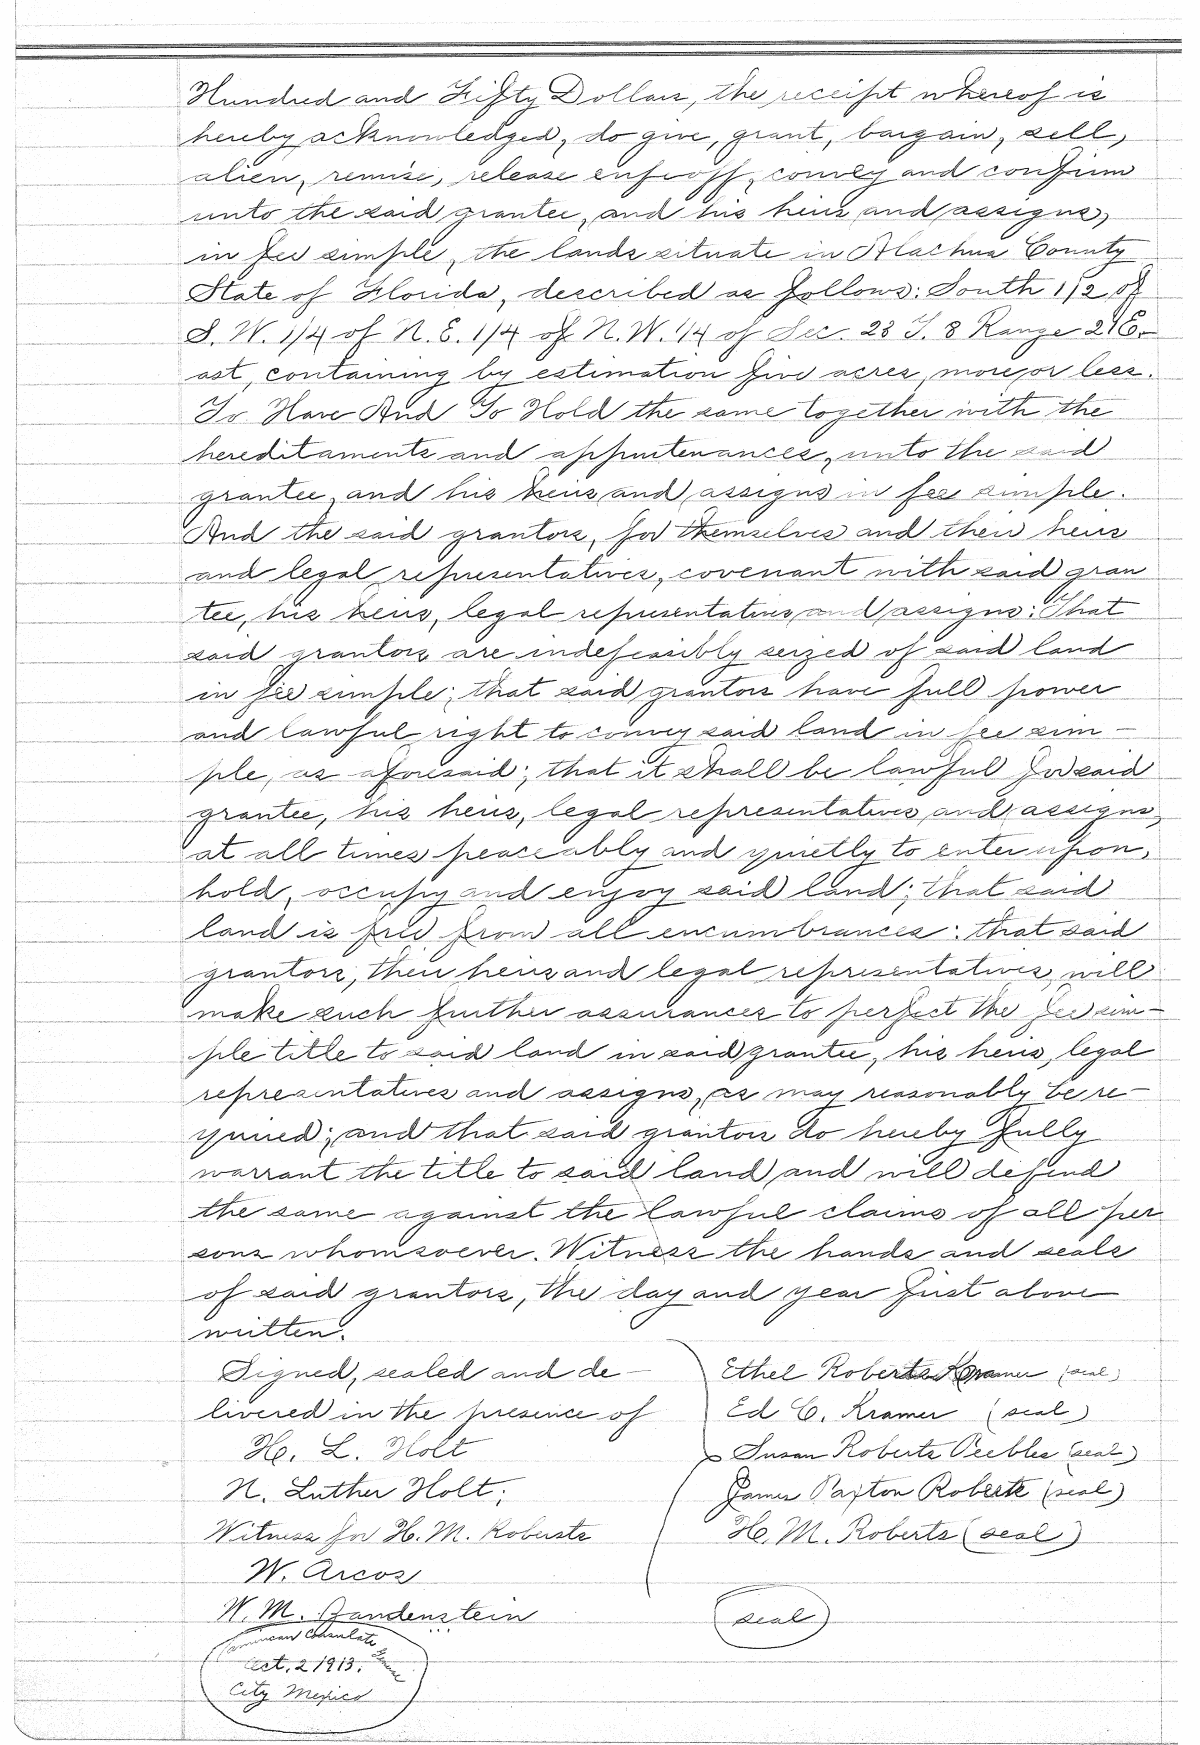 Hundred and Fifty Dollars, the receipt whereof is
hereby acknowledged, do give, grant, bargain, sell,
alien, remise, release enfeoff, convey and confirm
unto the said grantee, and his heirs and assigns,
in fee simple, the lands situate in Alachua County
State of Florida, described as follows: South 1/2 of
S. W. 1/4 of N. E. 1/4 of N. W. 1/4 of Sec. 28 T. 8 Range 21 E-
ast, containing by estimation five acres, more or less.
To Have And To Hold the same together with the
hereditaments and appurtenances, unto the said
grantee, and his heirs and assigns in fee simple.
And the said grantors, for themselves and their heirs
and legal representatives, covenant with said gran
tee, his heirs, legal representatives and assigns: That
said grantors are indefeasibly seized of said land
in fee simple; that said grantors have full power
and lawful right to convey said land in fee sim-
ple, as aforesaid; that it shall be lawful for said
grantee, his heirs, legal representatives and assigns,
at all times peaceably and quietly to enter upon,
hold, occupy and enjoy said land; that said
land is free from all encumbrances: that said
grantors, their heirs and legal representatives, will
make such further assurances to perfect the fee sim-
ple title to said land in said grantee, his heirs, legal
representatives and assigns, as may reasonably be re-
quired; and that said grantors do hereby fully
warrant the title to said land, and will defend
the same against the lawful claims of all per
sons whomsoever. Witness the hands and seals
of said grantors, the day and year first above
written.
Signed, sealed and de-
livered in the presence of
H. L. Holt
N. Luther Holt;
Witness for H. M. Roberts
W. Arcos
W. M. Bandenstein
American Consulate
Oct. 2 1913.
City Mexico
Ethel Roberts Kramer (seal)
Ed C. Kramer (seal)
Susan Roberts Peebles (seal)
James Paxton Roberts (seal)
H. M. Roberts (seal)
seal